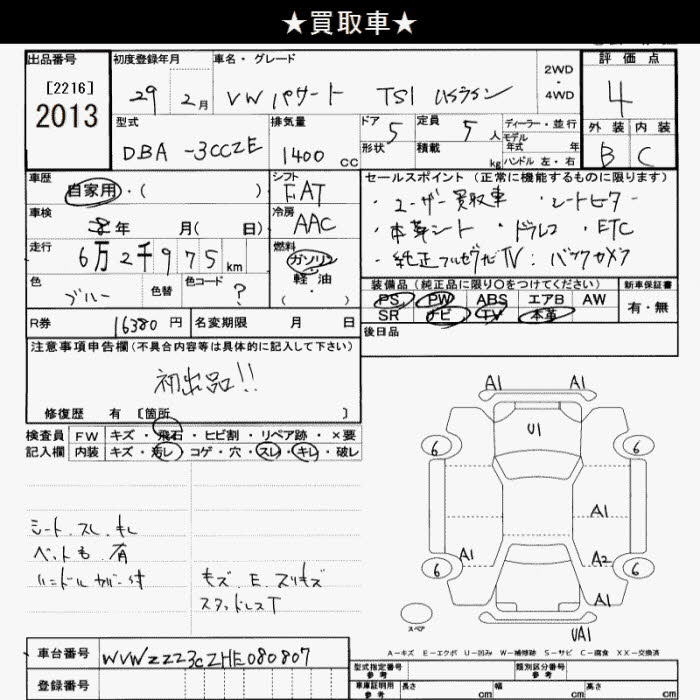 ★買取車★
出品番号 初度登録年月 車名・グレード 評価点
[2216] 29 2月 VW パサート TSI 2WD・4WD 4
2013 型式 排気量 ドア 定員 ディーラー・並行 外装 内装
DBA -3CCZE 1400 CC 5 5人 モデル年式 年 B C
形状 積載 kg ハンドル 左・右
車歴 シフト セールスポイント(正常に機能するものに限ります)
自家用・( ) FAT ・ユーザー買取車 ・シートヒーター
車検 年 月( 日) 冷房 AAC ・本革シート ・ドラレコ ・ETC
走行 6万2千975km 燃料 ガソリン・軽油・( ) ・純正フルセグナビTV:バックカメラ
色 ブルー 色替 色コード ? 装備品(純正品に限り○をつけてください) 新車保証書
PS PW ABS エアB AW 有・無
R券 16380円 名変期限 月 日 SR ナビ TV 本革
後日品
注意事項申告欄(不具合内容等は具体的に記入して下さい)
初出品!!
修復歴 有 [箇所 ]
検査員 FW キズ・飛石・ヒビ割・リペア跡・×要
記入欄 内装 キズ・汚レ・コゲ・穴・スレ・キレ・破レ
A1 A1
U1
6 6
A1
A1 A2
6 6
A1
UA1
スペア
シート.スレ.キレ
ペット毛.有
ハンドルカバー付
キズ.E.スリキズ
スタッドレスT
A-キズ E-エクボ U-凹み W-補修跡 S-サビ C-腐食 XX-交換済
車台番号 WVWZZZ3CZHE080807
型式指定番号 参考 類別区分番号 参考
登録番号 車庫証明用 参考 長さ cm 幅 cm 高さ cm